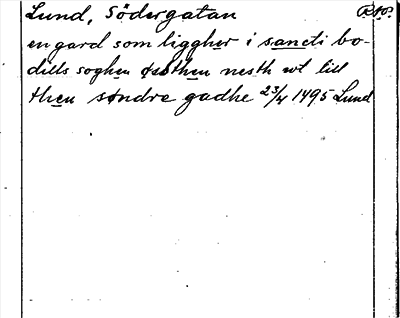 Lund, Södergatan
en gard som liggher i sancti bo-
dills soghen østhen nesth wt till
then søndre gadhe 23/4 1495 Lund